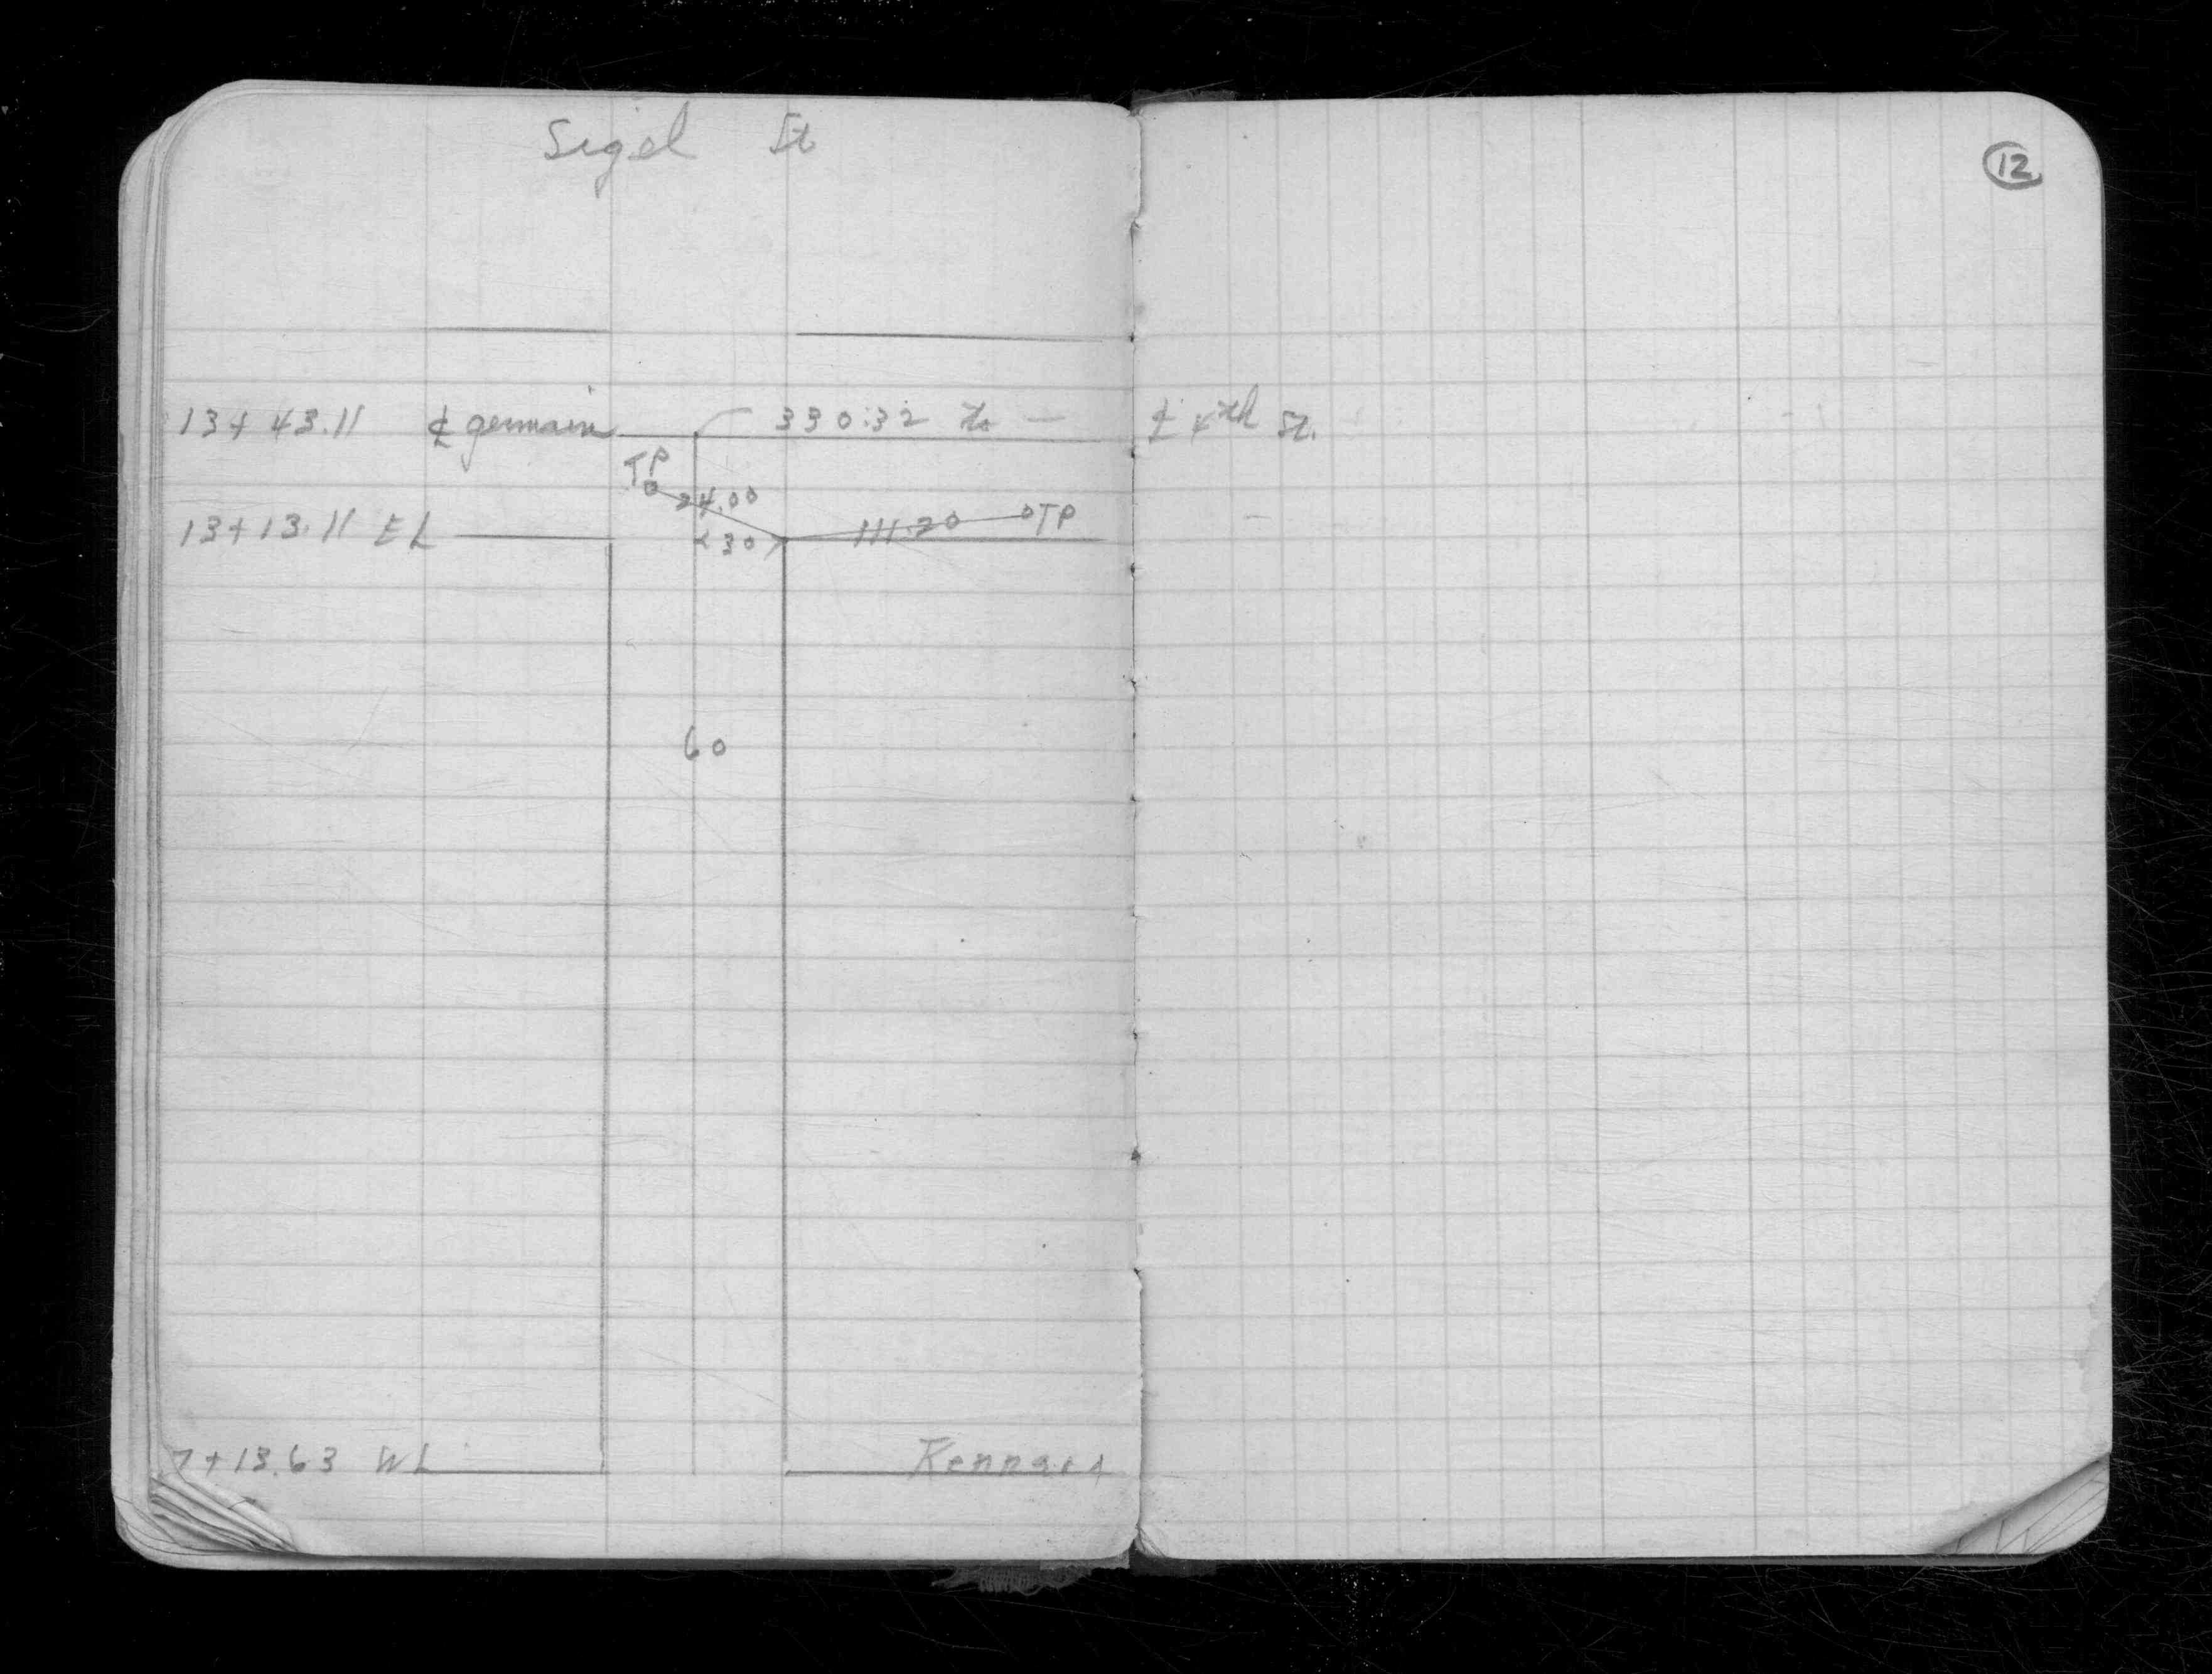 Sigel St
12
13+43.11 ℄ germain 330.32 to — ℄ 4th St.
TP
24.00
13+13.11 EL <30> 111.20 TP
60
7+13.63 WL Kennard